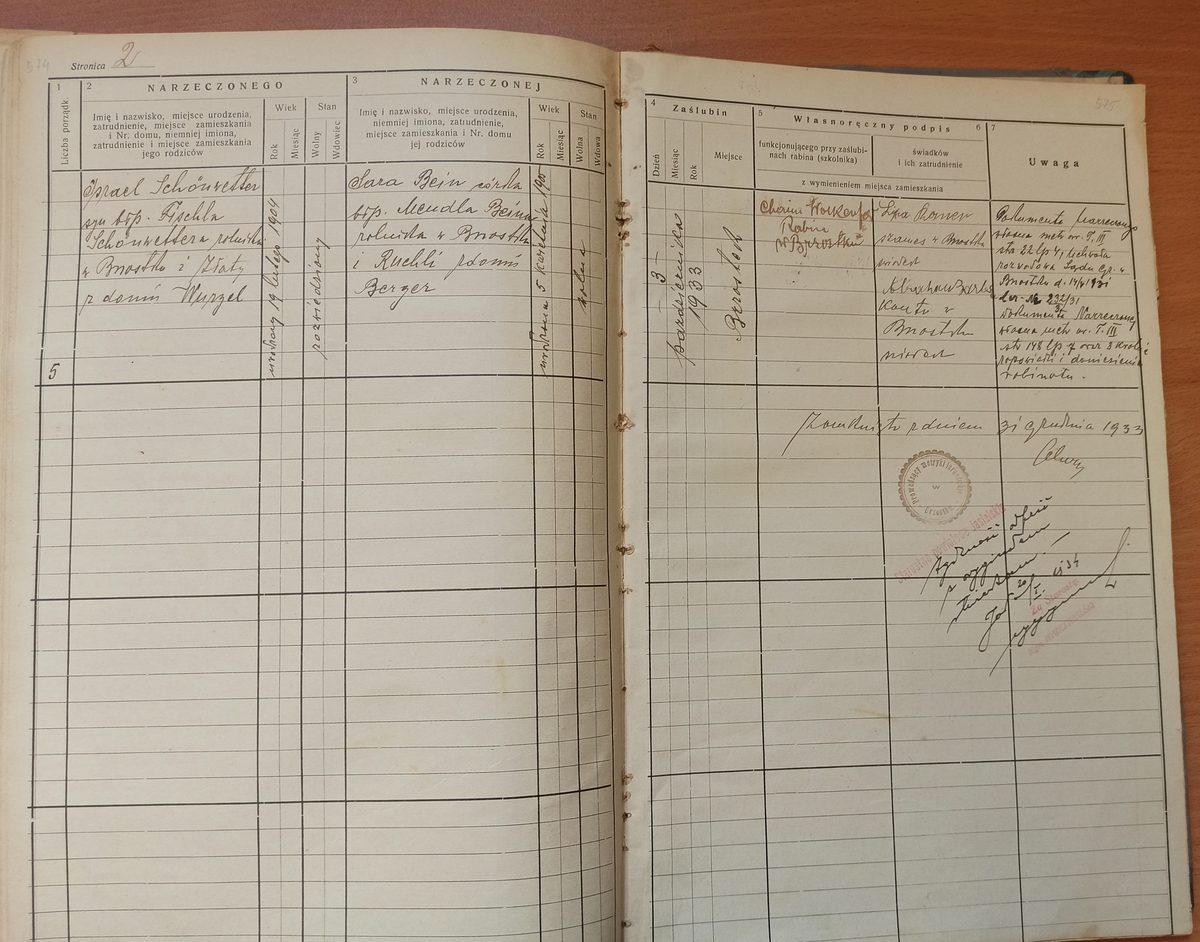 574
Stronica 2
1
Liczba porządk.
2
NARZECZONEGO
Imię i nazwisko, miejsce urodzenia,
zatrudnienie, miejsce zamieszkania
i Nr. domu, niemniej imiona,
zatrudnienie i miejsce zamieszkania
jego rodziców
Wiek
Rok
Miesiąc
Stan
Wolny
Wdowiec
3
NARZECZONEJ
Imię i nazwisko, miejsce urodzenia,
niemniej imiona, zatrudnienie,
miejsce zamieszkania i Nr. domu
jej rodziców
Wiek
Rok
Miesiąc
Stan
Wolna
Wdowa
5
Israel Schönwetter
syn błp. Fyschla
Schönwettera rolnika
w Brzostku i Złaty
z domu Wurzel
urodzony 19 lutego 1904
rozwiedziony
Sara Bein córka
błp. Mendla Beina
rolnika w Brzostku
i Ruchli z domu
Berger
urodzona 5 kwietnia
wolna
575
4
Zaślubin
Dzień
Miesiąc
Rok
Miejsce
5
Własnoręczny podpis
6
funkcjonującego przy zaślubi-
nach rabina (szkolnika)
świadków
i ich zatrudnienie
z wymienieniem miejsca zamieszkania
7
Uwaga
3
października
1933
Brzostek
Chaim
Rabin
w Brzostku
w Brzostku
świadek
w
Brzostku
świadek
Dokumenta Narzeczonego
własna metr. ur. T. III
str 22 lp 4, uchwała
rozwodowa Sądu
Brzostku d.
232/31
dokumenta Narzeczonej
własna metr. ur. T. III
str 148 lp 7 oraz 3 krotne
zapowiedzi i doniesienie
rabinatu.
Zamknięto z dniem 31 grudnia 1933
Prowadzący metryki izraelickie
w
Brzostku
Starostwo powiatowe jasielskie
Zgodność
z oryginałem
stwierdzam.
Za Starostę